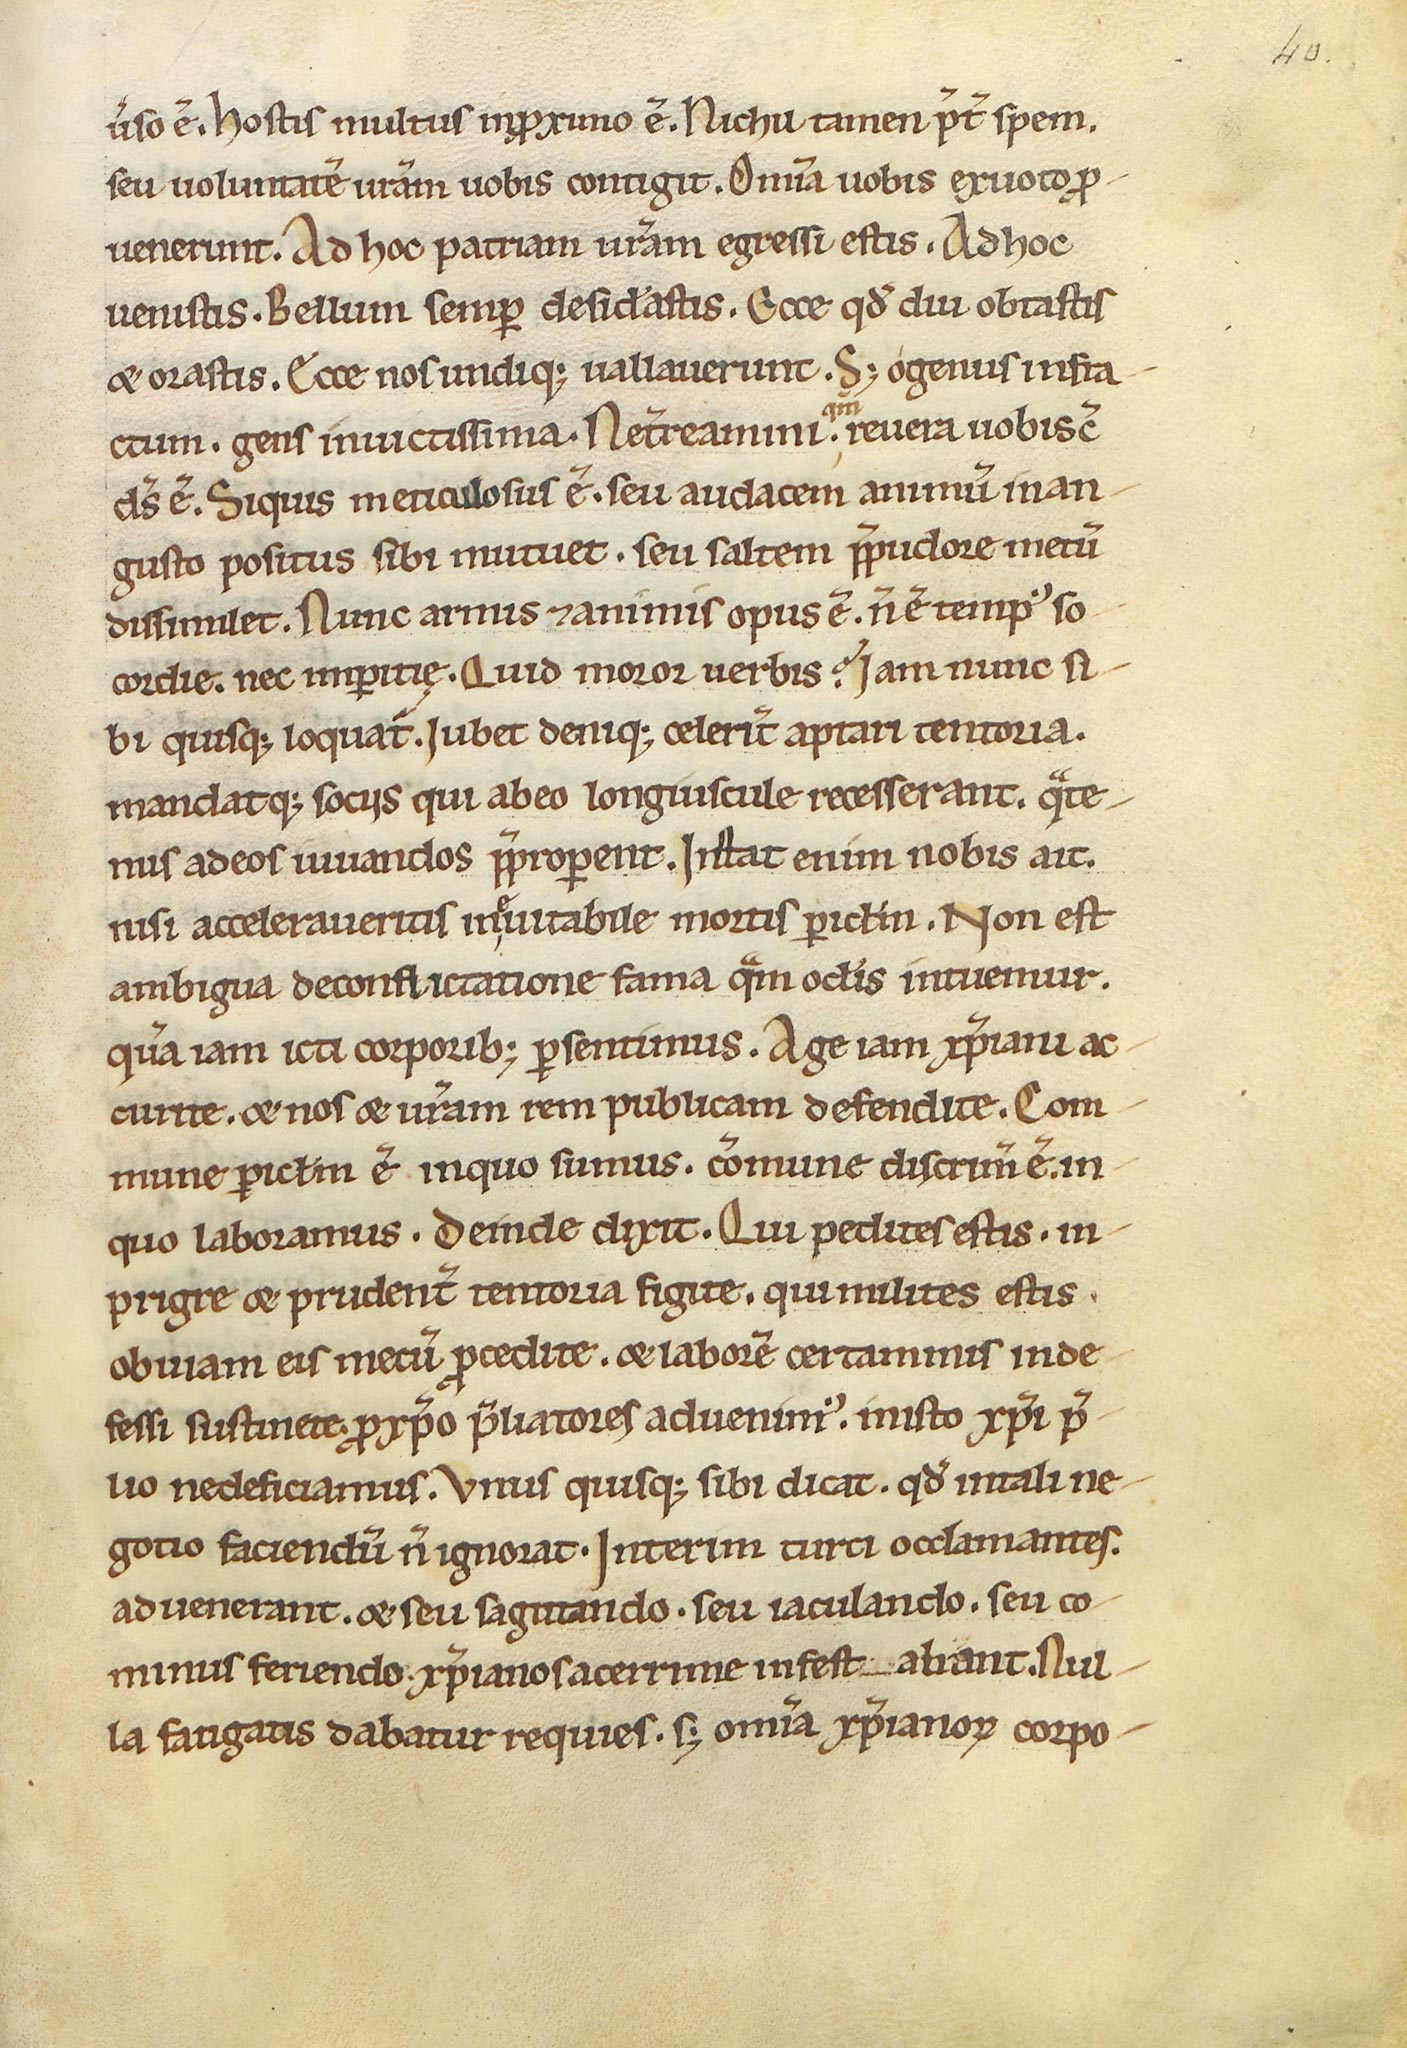 40.
ũso ẽ. Hostis multus inꝓximo ẽ. Nichil tamen p̃t̃ spem.
seu uoluntatẽ ur̃am uobis contigit. Om̃ia uobis exuoto ꝓ-
uenerunt. Ad hoc patriam ur̃am egressi estis. Ad hoc
uenistis. Bellum semꝑ desid̃astis. Ecce qd̃ diu obtastis
& orastis. Ecce nos undiq; uallauerunt. S; o genus infra-
ctum. gens inuictissima. Net̃reamini. qm̃ reuera uobisc̃
ds̃ ẽ. Siquis meticulosus ẽ. seu audacem animũ in an-
gusto positus sibi mutuet. seu saltem p̃pudore metũ
dissimilet. Nunc armis ⁊ animis opus ẽ. ñ ẽ tempꝰ so-
cordie. nec imꝑitię. Quid moror uerbis? Iam nunc si-
bi quisq; loquat̃. Iubet deniq; celerit̃ aptari tentoria.
mandatq; socijs qui abeo longiuscule recesserant. q̃te-
nus adeos iuuandos p̃proꝑent. Instat enim nobis ait.
nisi acceleraueritis ineuitabile mortis ꝑicl̃m. Non est
ambigua deconflictatione fama q̃m ocl̃is intuemur.
q̃ua iam icti corporib; ꝑsentimus. Age iam xp̃iani ac-
currite. & nos & ur̃am rem publicam defendite. Com-
mune ꝑicl̃m ẽ inquo sumus. cõmune discrim̃ ẽ. in-
quo laboramus. Deinde dixit. Qui pedites estis. in-
prigre & prudent̃ tentoria figite. qui milites estis.
obuiam eis mecũ ꝓcedite. & laborẽ certaminis inde-
fessi sustinete. ꝓxp̃o p̃liatores aduenimꝰ. inisto xp̃i p̃-
lio nedeficiamus. Vnus quisq; sibi dicat. qd̃ intali ne-
gotio faciendũ ñ ignorat. Interim turci occlamantes.
aduenerant. & seu sagittando. seu iaculando. seu co-
minus feriendo. xp̃ianos acerrime infest_abant. Nul-
la fatigatis dabatur requies. s; om̃ia xp̃ianoꝝ corpo-